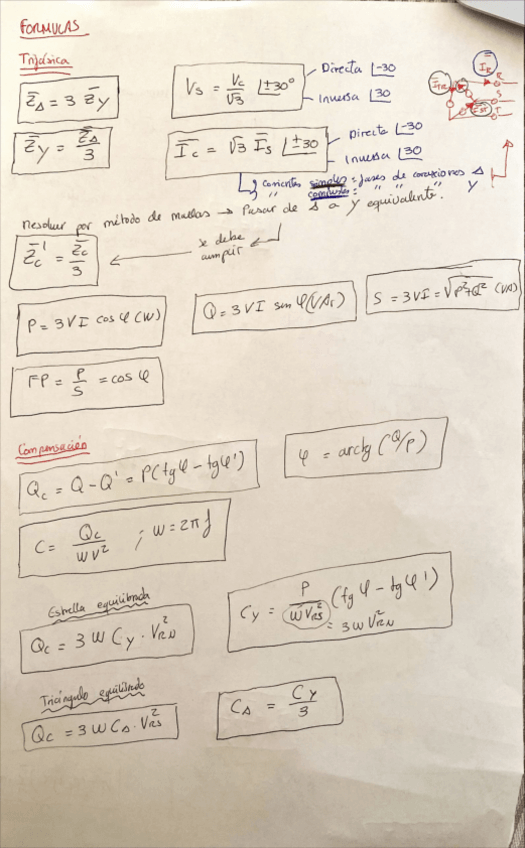 FORMULAS
Trifásica
Z̄Δ = 3 Z̄Y
Vs = Vc/√3 ∠±30°
Directa ∠-30
Inversa ∠30
Z̄Y = Z̄Δ/3
Īc = √3 Īs ∠±30
Directa ∠-30
Inversa ∠30
corrientes simples = fases de conexiones Δ
" compuestas = " " " Y
Resolver por método de mallas → Pasar de Δ a Y equivalente.
Z̄c' = Z̄c/3
se debe
cumplir
P = 3VI cos φ (W)
Q = 3VI sin φ (VAr)
S = 3VI = √P²+Q² (VA)
FP = P/S = cos φ
Compensación
Qc = Q - Q' = P(tgφ - tgφ')
φ = arctg (Q/P)
C = Qc/WV² ; W = 2πf
Estrella equilibrada
Qc = 3 W CY · VRN²
CY = P/WVRS² (tgφ - tgφ')
= 3WVRN²
Triángulo equilibrado
Qc = 3 W CΔ · VRS²
CΔ = CY/3
ĪR
R
S
T